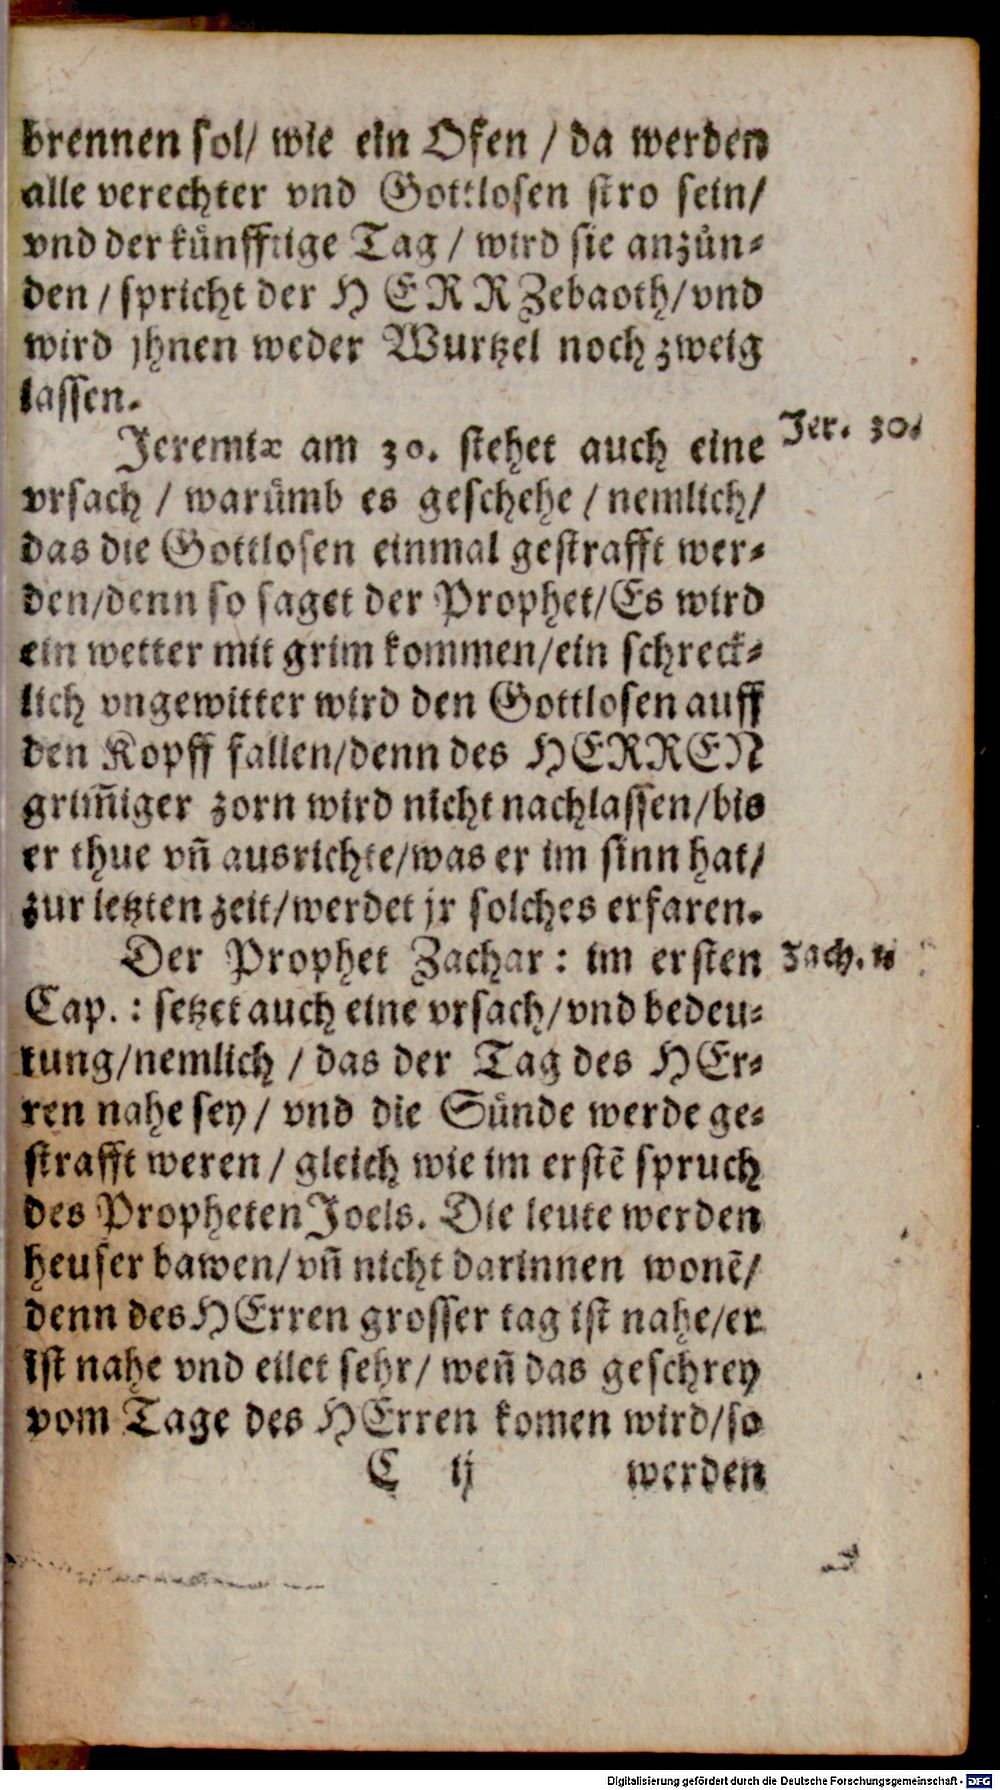 brennen sol/ wie ein Ofen / da werden
alle verechter vnd Gottlosen stro sein/
vnd der künfftige Tag / wird sie anzün-
den / spricht der HERR Zebaoth/ vnd
wird jhnen weder Wurtzel noch zweig
lassen.
Jeremiæ am 30. stehet auch eine
Jer. 30.
vrsach / warümb es geschehe / nemlich/
das die Gottlosen einmal gestrafft wer-
den/denn so saget der Prophet/Es wird
ein wetter mit grim kommen/ein schreck-
lich vngewitter wird den Gottlosen auff
den Kopff fallen/denn des HERREN
grim̃iger zorn wird nicht nachlassen/bis
er thue vñ ausrichte/was er im sinn hat/
zur letzten zeit/werdet jr solches erfaren.
Der Prophet Zachar: im ersten
Zach. 1.
Cap.: setzet auch eine vrsach/vnd bedeu-
tung/nemlich / das der Tag des HEr-
ren nahe sey/ vnd die Sünde werde ge-
strafft weren / gleich wie im erstẽ spruch
des Propheten Joels. Die leute werden
heuser bawen/ vñ nicht darinnen wonẽ/
denn des HErren grosser tag ist nahe/er
ist nahe vnd eilet sehr/ weñ das geschrey
vom Tage des HErren komen wird/so
C ij werden
Digitalisierung gefördert durch die Deutsche Forschungsgemeinschaft - DFG